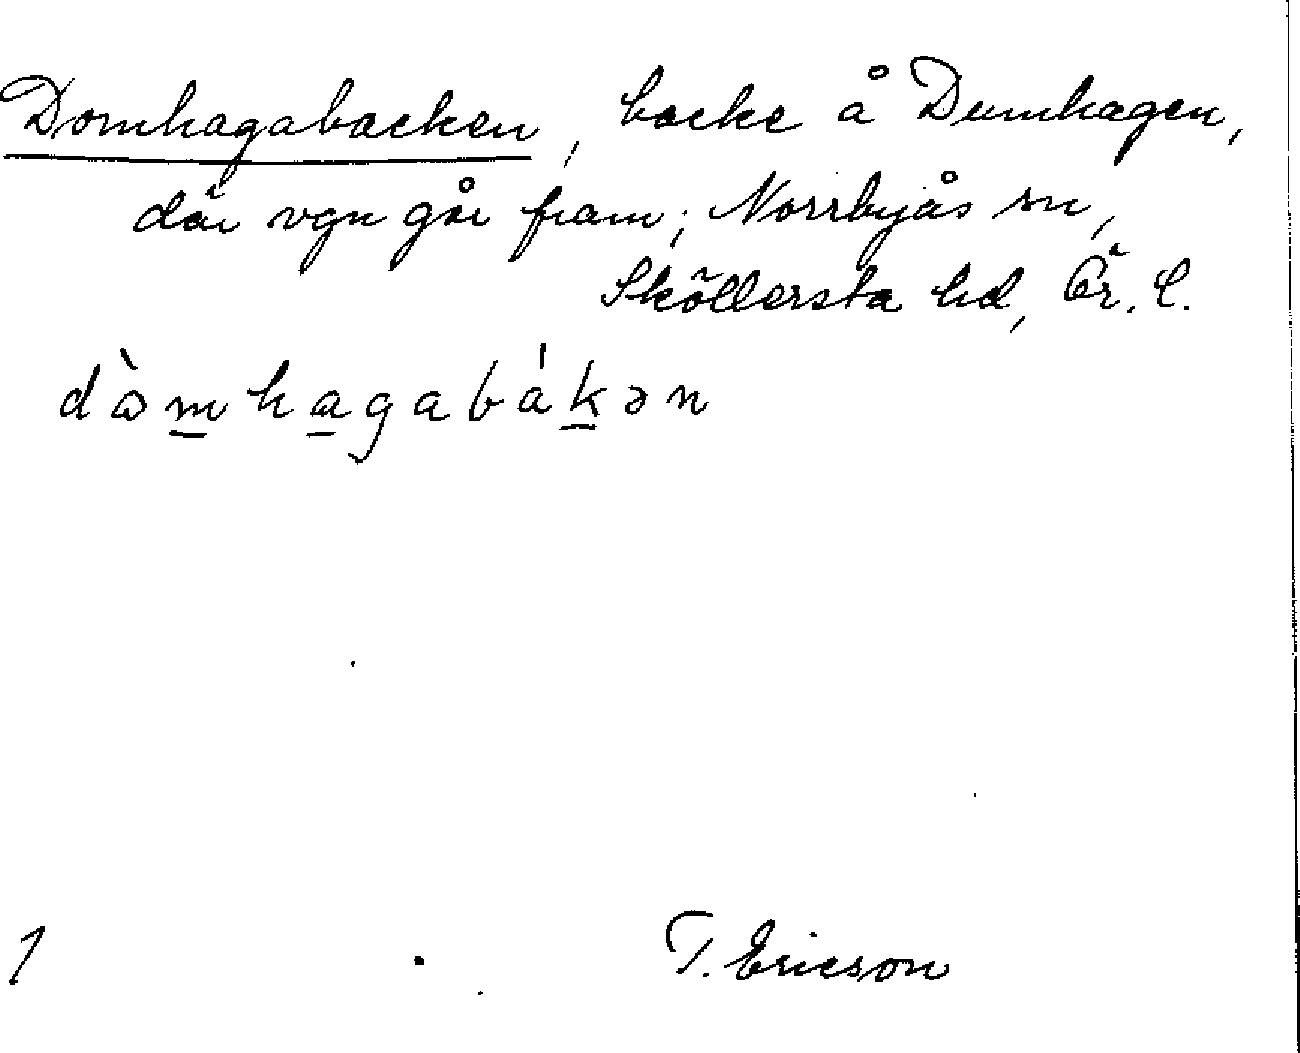 Domhagabacken, backe å Dumhagen,
där vgn går fram; Norrbyås sn,
Sköllersta hd, Ör. l.
dòmhagabákən
1
T. Ericson